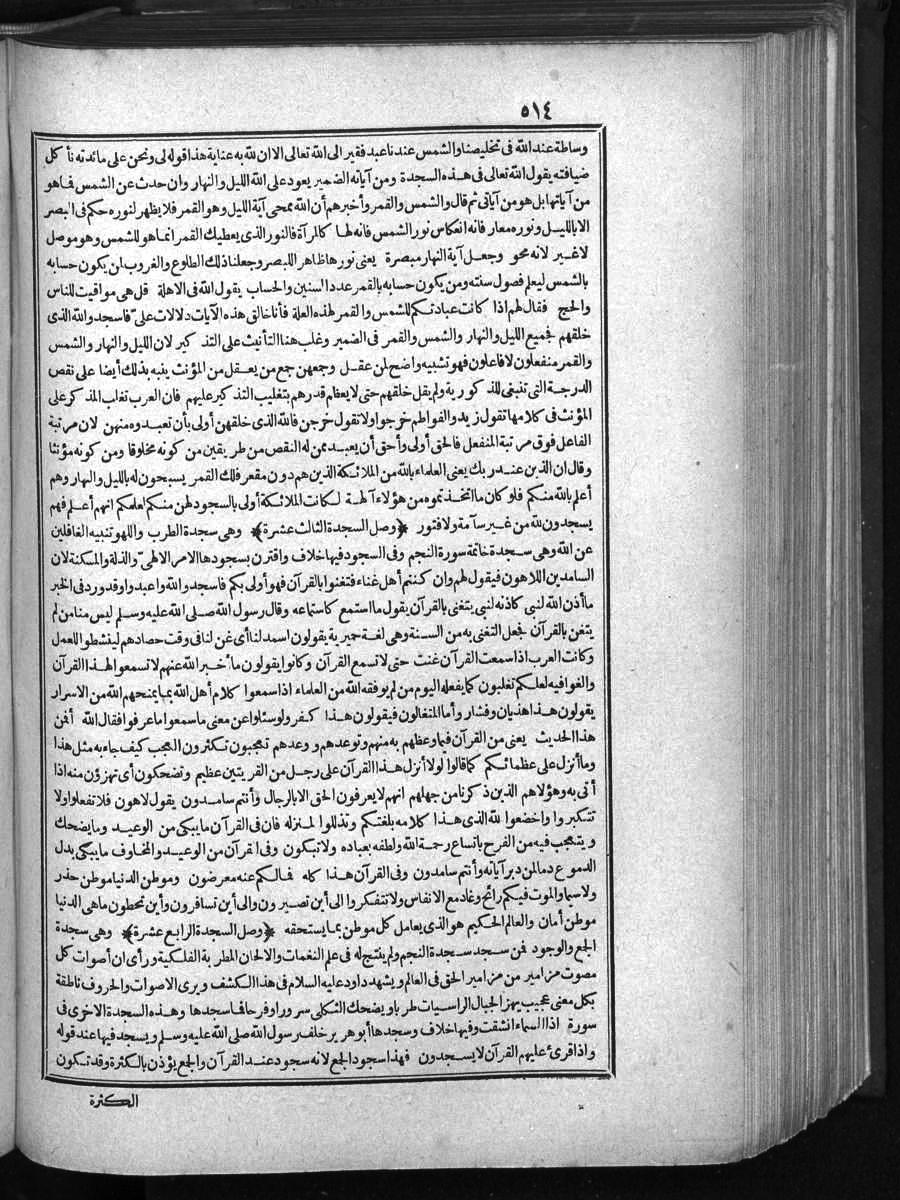 ٥١٤
وساطة عند الله في تخليصنا والشمس عندنا عبد فقير الى الله تعالى الا ان لله به عناية هذا قوله لى ونحن على مائدته نأكل
ضيافته يقول الله تعالى في هذه السجدة ومن آياته الضمير يعود على الله الليل والنهار وان حدث عن الشمس فما هو
من آياتها بل هو من آياتى ثم قال والشمس والقمر وأخبرهم أن الله محى آية الليل وهو القمر فلا يظهر لنوره حكم فى البصر
الا بالليل ونوره معار فانه انعكاس نور الشمس فانه لها كالمرآة فالنور الذى يعطيك القمر انما هو للشمس وهو موصل
لا غير لانه محو وجعل آية النهار مبصرة يعنى نورها ظاهر للبصر وجعلنا ذلك الطلوع والغروب لمن يكون حسابه
بالشمس ليعلم فصول سنته ومن يكون حسابه بالقمر عدد السنين والحساب يقول الله فى الاهلة قل هى مواقيت للناس
والحج فقال لهم اذا كانت عبادتكم للشمس والقمر لهذه العلة فأنا خالق هذه الآيات دلالات علىّ فاسجدوا لله الذى
خلقهم فجميع الليل والنهار والشمس والقمر فى الضمير وغلب هنا التأنيث على التذكير لان الليل والنهار والشمس
والقمر منفعلون لا فاعلون فهو تشبيه واضح لمن عقل وجعهن جمع من يعقل من المؤنث ينبه بذلك أيضا على نقص
الدرجة التى تنبغى للذكورية ولم يقل خلقهم حتى لا يعظم قدرهم بتغليب التذكير عليهم فان العرب تغلب المذكر على
المؤنث فى كلامها تقول زيد والفواطم خرجوا ولا تقول خرجن فالله الذى خلقهن أولى بأن تعبدوه منهن لان مرتبة
الفاعل فوق مرتبة المنفعل فالحق أولى وأحق أن يعبد ممن له النقص من طريقين من كونه مخلوقا ومن كونه مؤنثا
وقال ان الذين عند ربك يعنى العلماء بالله من الملائكة الذين هم دون مقعر فلك القمر يسبحون له بالليل والنهار وهم
أعلم بالله منكم فلو كان ما اتخذتموه من هؤلاء آلهة لكانت الملائكة أولى بالسجود لهن منكم لعلمكم انهم أعلم فهم
يسجدون لله من غير سآمة ولا فتور ﴿وصل السجدة الثالث عشرة﴾ وهى سجدة الطرب واللهو تنبيه الغافلين
عن الله وهى سجدة خاتمة سورة النجم وفى السجود فيها خلاف واقترن بسجودها الامر الالهىّ والذلة والمسكنة لان
السامدين اللاهون فيقول لهم وان كنتم أهل غناء فتغنوا بالقرآن فهو أولى بكم فاسجدوا لله واعبدوا وقد ورد فى الخبر
ما أذن الله لنبى كاذنه لنبى يتغنى بالقرآن يقول ما استمع كاستماعه وقال رسول الله صلى الله عليه وسلم ليس منا من لم
يتغن بالقرآن فجعل التغنى به من السنة وهى لغة حميرية يقولون اسمد لنا أى غن لنا فى وقت حصادهم لينشطوا للعمل
وكانت العرب اذا سمعت القرآن غنت حتى لا تسمع القرآن وكانوا يقولون ما أخبر الله عنهم لا تسمعوا لهذا القرآن
والغوا فيه لعلكم تغلبون كما يفعله اليوم من لم يوفقه الله من العلماء اذا سمعوا كلام أهل الله بما يمنحهم الله من الاسرار
يقولون هذا هذيان وفشار وأما المتغالون فيقولون هذا كفر ولو سئلوا عن معنى ما سمعوا ما عرفوا فقال الله أفمن
هذا الحديث يعنى من القرآن فيما وعظهم به منهم وتوعدهم ووعدهم تعجبون تكثرون العجب كيف جاء به مثل هذا
وما أنزل على عظمائكم كما قالوا لولا أنزل هذا القرآن على رجل من القريتين عظيم وتضحكون أى تهزؤن منه اذا
أتى به وهؤلاهم الذين ذكرنا من جهلهم انهم لا يعرفون الحق الا بالرجال وأنتم سامدون يقول لاهون فلا تفعلوا ولا
تتكبروا واخضعوا لله الذى هذا كلامه بلغتكم وتذللوا لمنزله فان فى القرآن ما يبكى من الوعيد وما يضحك
ويتعجب فيه من الفرح باتساع رحمة الله ولطفه بعباده ولا تبكون وفى القرآن من الوعيد والمخاوف ما يبكى بدل
الدموع دما لمن دبر آياته وأنتم سامدون وفى القرآن هذا كله فما لكم عنه معرضون وموطن الدنيا موطن حذر
ولا سيما والموت فيكم رائح وغاد مع الانفاس ولا تتفكروا الى أين تصيرون والى أين تسافرون وأين تحطون ما هى الدنيا
موطن أمان والعالم الحكيم هو الذى يعامل كل موطن بما يستحقه ﴿وصل السجدة الرابع عشرة﴾ وهى سجدة
الجمع والوجود فمن سجد سجدة النجم ولم ينتج له فى علم النغمات والالحان المطربة الفلكية ورأى ان أصوات كل
مصوت مزامير من مزامير الحق فى العالم ويشهد داود عليه السلام فى هذا الكشف ويرى الاصوات والحروف ناطقة
بكل معنى عجيب يهز الجبال الراسيات طربا ويضحك الثكلى سرورا وفرحا فما سجدها وهذه السجدة الاخرى فى
سورة اذا السماء انشقت وفيها خلاف وسجدها أبو هرير خلف رسول الله صلى الله عليه وسلم ويسجد فيها عند قوله
واذا قرئ عليهم القرآن لا يسجدون فهذا سجود الجمع لانه سجود عند القرآن والجمع يؤذن بالكثرة وقد تكون
الكثرة